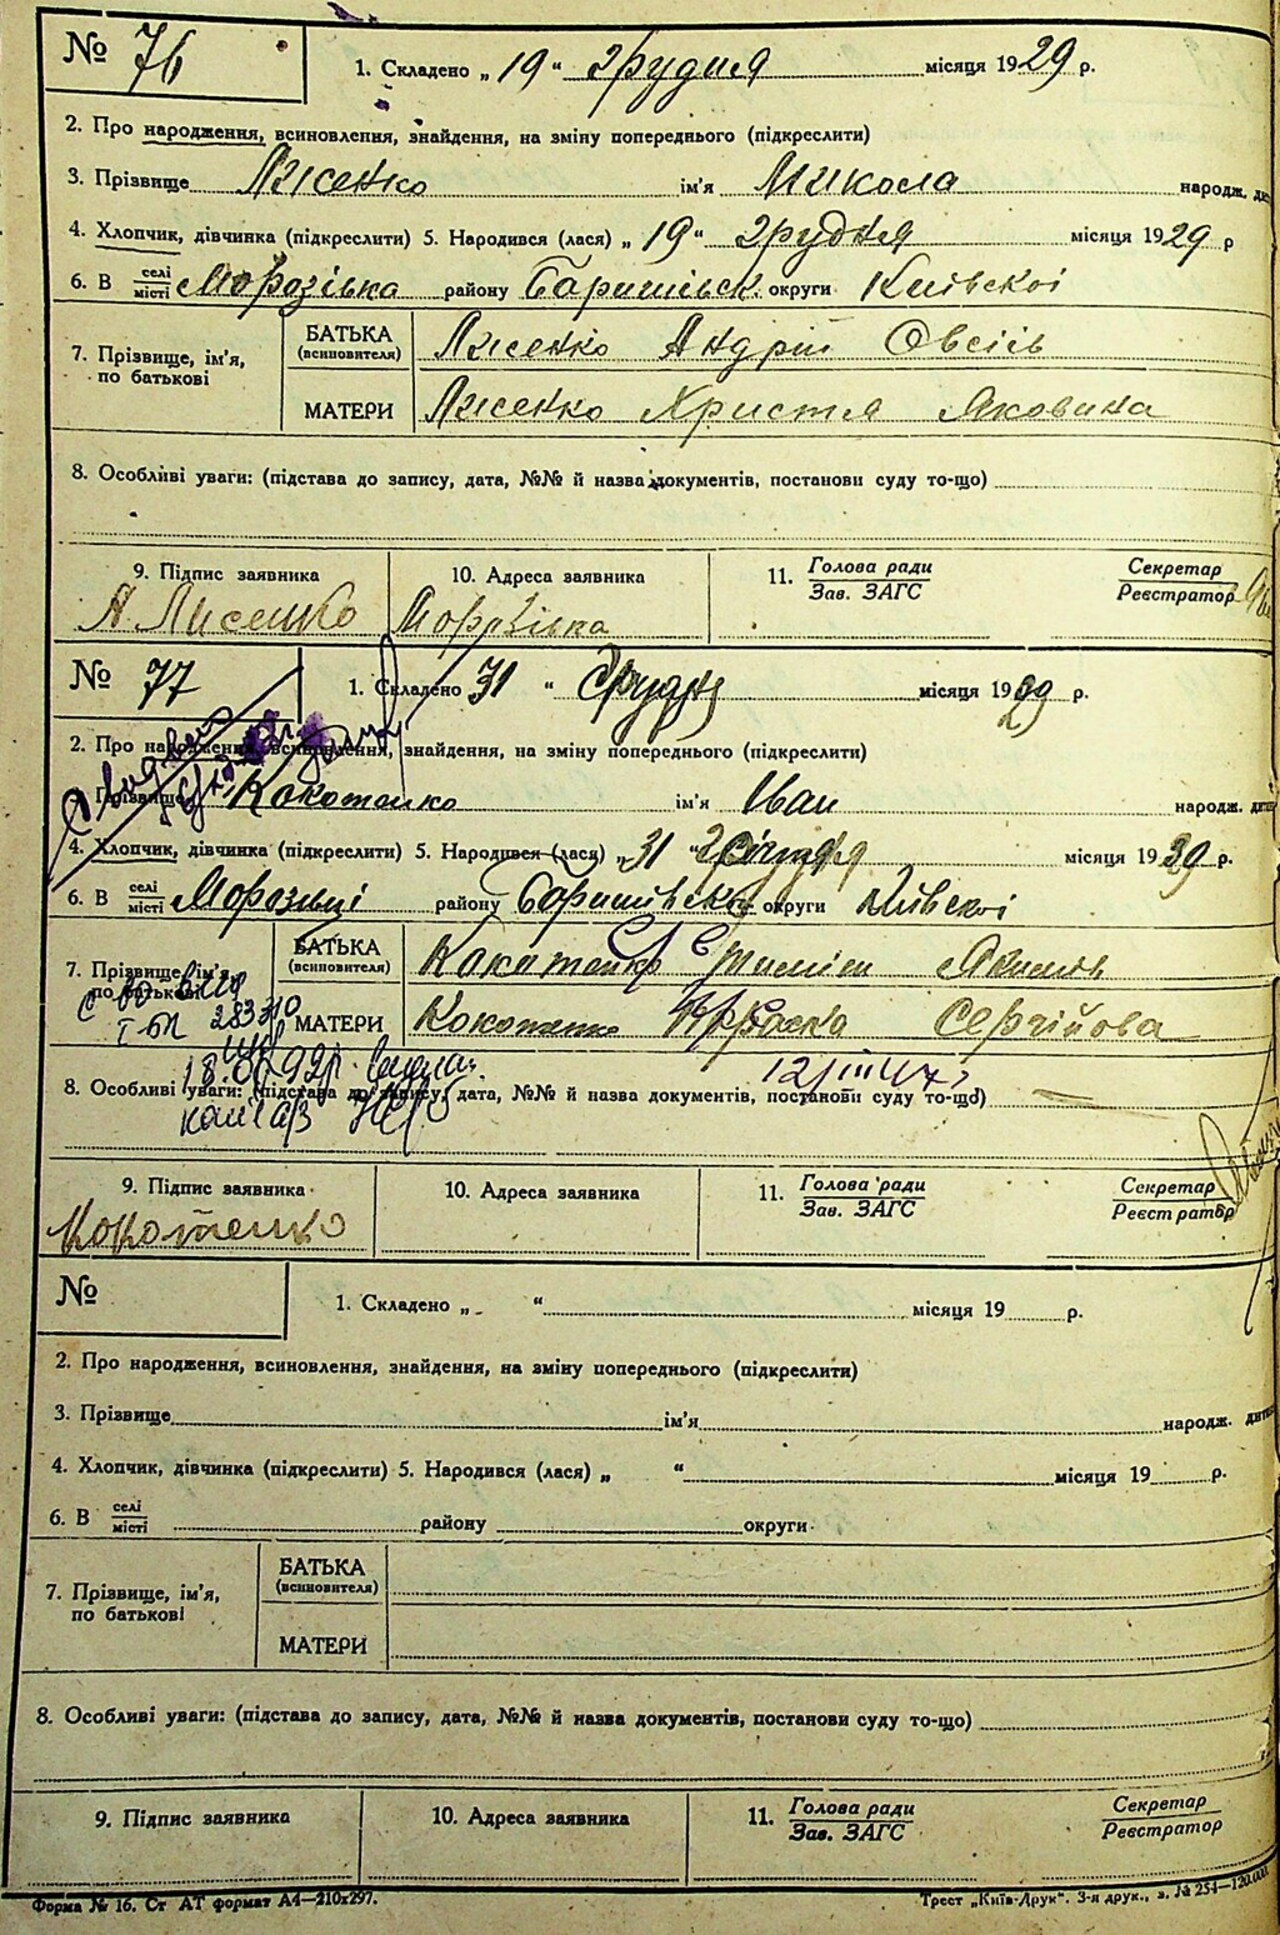 № 76
1. Складено „ 19 “ грудня місяця 1929 р.
2. Про народження, всиновлення, знайдення, на зміну попереднього (підкреслити)
3. Прізвище Лисенко ім'я Микола народж.
4. Хлопчик, дівчинка (підкреслити) 5. Народився (лася) „ 19 “ грудня місяця 1929 р
6. В селі місті Морозівка району Баришівськ. округи Київскоі
7. Прізвище, ім'я, по батькові
БАТЬКА (всиновителя) Лисенко Андрій Овсіів
МАТЕРИ Лисенко Христя Яковина
8. Особливі уваги: (підстава до запису, дата, №№ й назва документів, постанови суду то-що)
9. Підпис заявника
10. Адреса заявника
11. Голова ради Зав. ЗАГС
Секретар Реєстратор
А. Лисенко Морозівка
№ 77
1. Складено 31 “ грудня місяця 1929 р.
2. Про народження, всиновлення, знайдення, на зміну попереднього (підкреслити)
3. Прізвище Кокотенко ім'я Іван народж.
4. Хлопчик, дівчинка (підкреслити) 5. Народився (лася) „ 31 “ місяця 19 р.
6. В селі місті Морозівці району округи Київскоі
7. Прізвище, ім'я, по батькові
БАТЬКА (всиновителя) Якимів
МАТЕРИ Кокотенко Сергійова
283310
12/III 47
8. Особливі уваги: (підстава до запису, дата, №№ й назва документів, постанови суду то-що)
9. Підпис заявника
10. Адреса заявника
11. Голова ради Зав. ЗАГС
Секретар Реєстратор
Кокотенко
№
1. Складено „ “ місяця 19 р.
2. Про народження, всиновлення, знайдення, на зміну попереднього (підкреслити)
3. Прізвище ім'я народж.
4. Хлопчик, дівчинка (підкреслити) 5. Народився (лася) „ “ місяця 19 р.
6. В селі місті району округи
7. Прізвище, ім'я, по батькові
БАТЬКА (всиновителя)
МАТЕРИ
8. Особливі уваги: (підстава до запису, дата, №№ й назва документів, постанови суду то-що)
9. Підпис заявника
10. Адреса заявника
11. Голова ради Зав. ЗАГС
Секретар Реєстратор
Форма № 16. Ст АТ формат А4—210х297.
Трест „Київ-Друк“. 3-я друк., з. № 254—120.000